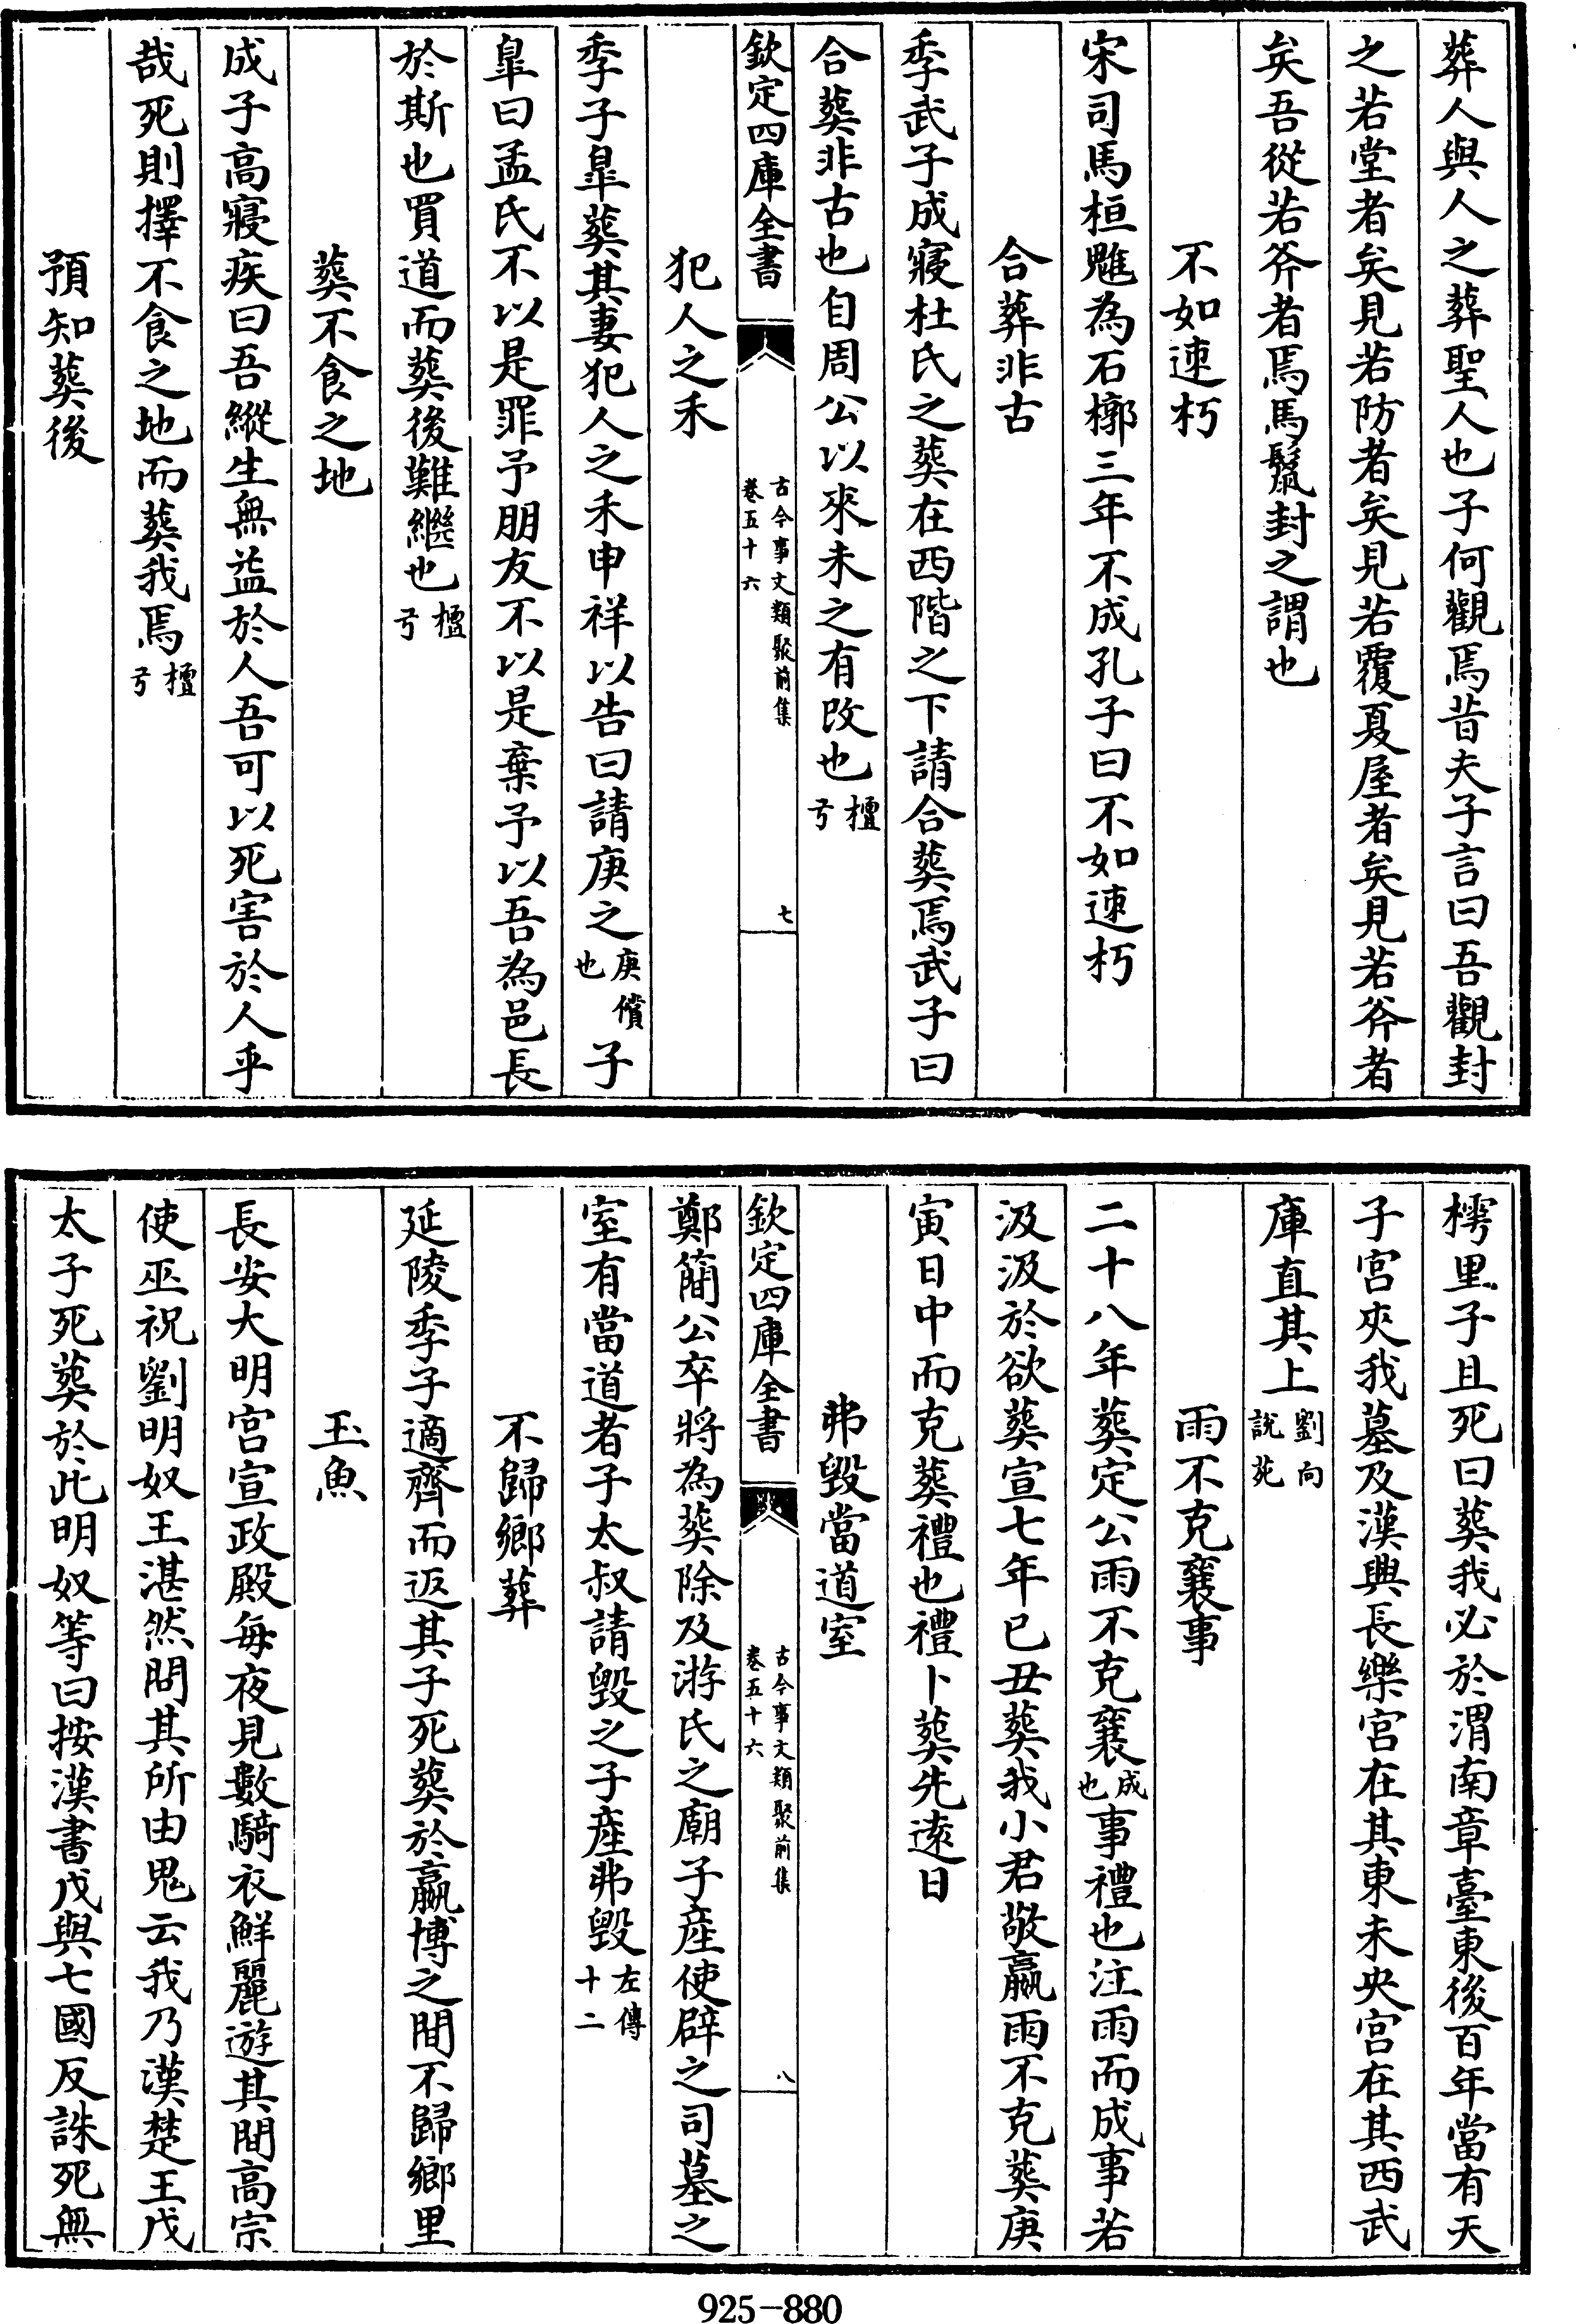 葬人與人之葬聖人也子何觀焉昔夫子言曰吾觀封
之若堂者矣見若防者矣見若覆夏屋者矣見若斧者
矣吾從若斧者焉馬鬛封之謂也
不如速朽
宋司馬桓魋為石槨三年不成孔子曰不如速朽
合葬非古
季武子成寢杜氏之葬在西階之下請合葬焉武子曰
合葬非古也自周公以來未之有改也檀弓
欽定四庫全書
古今事文類聚前集
卷五十六
七
犯人之禾
季子臯葬其妻犯人之禾申祥以告曰請庚之庚償也子
臯曰孟氏不以是罪予朋友不以是棄予以吾為邑長
於斯也買道而葬後難繼也檀弓
葬不食之地
成子高寢疾曰吾縱生無益於人吾可以死害於人乎
哉死則擇不食之地而葬我焉檀弓
預知葬後
樗里子且死曰葬我必於渭南章臺東後百年當有天
子宮夾我墓及漢興長樂宮在其東未央宮在其西武
庫直其上劉向說苑
雨不克襄事
二十八年葬定公雨不克襄成也事禮也注雨而成事若
汲汲於欲葬宣七年已丑葬我小君敬嬴雨不克葬庚
寅日中而克葬禮也禮卜葬先逺日
弗毀當道室
欽定四庫全書
古今事文類聚前集
卷五十六
八
鄭簡公卒將為葬除及游氏之廟子産使辟之司墓之
室有當道者子太叔請毀之子産弗毀左傳十二
不歸鄉葬
延陵季子適齊而返其子死葬於嬴博之間不歸鄉里
玉魚
長安大明宮宣政殿每夜見數騎衣鮮麗遊其間高宗
使巫祝劉明奴王湛然問其所由鬼云我乃漢楚王戊
太子死葬於此明奴等曰按漢書戊與七國反誅死無
925-880